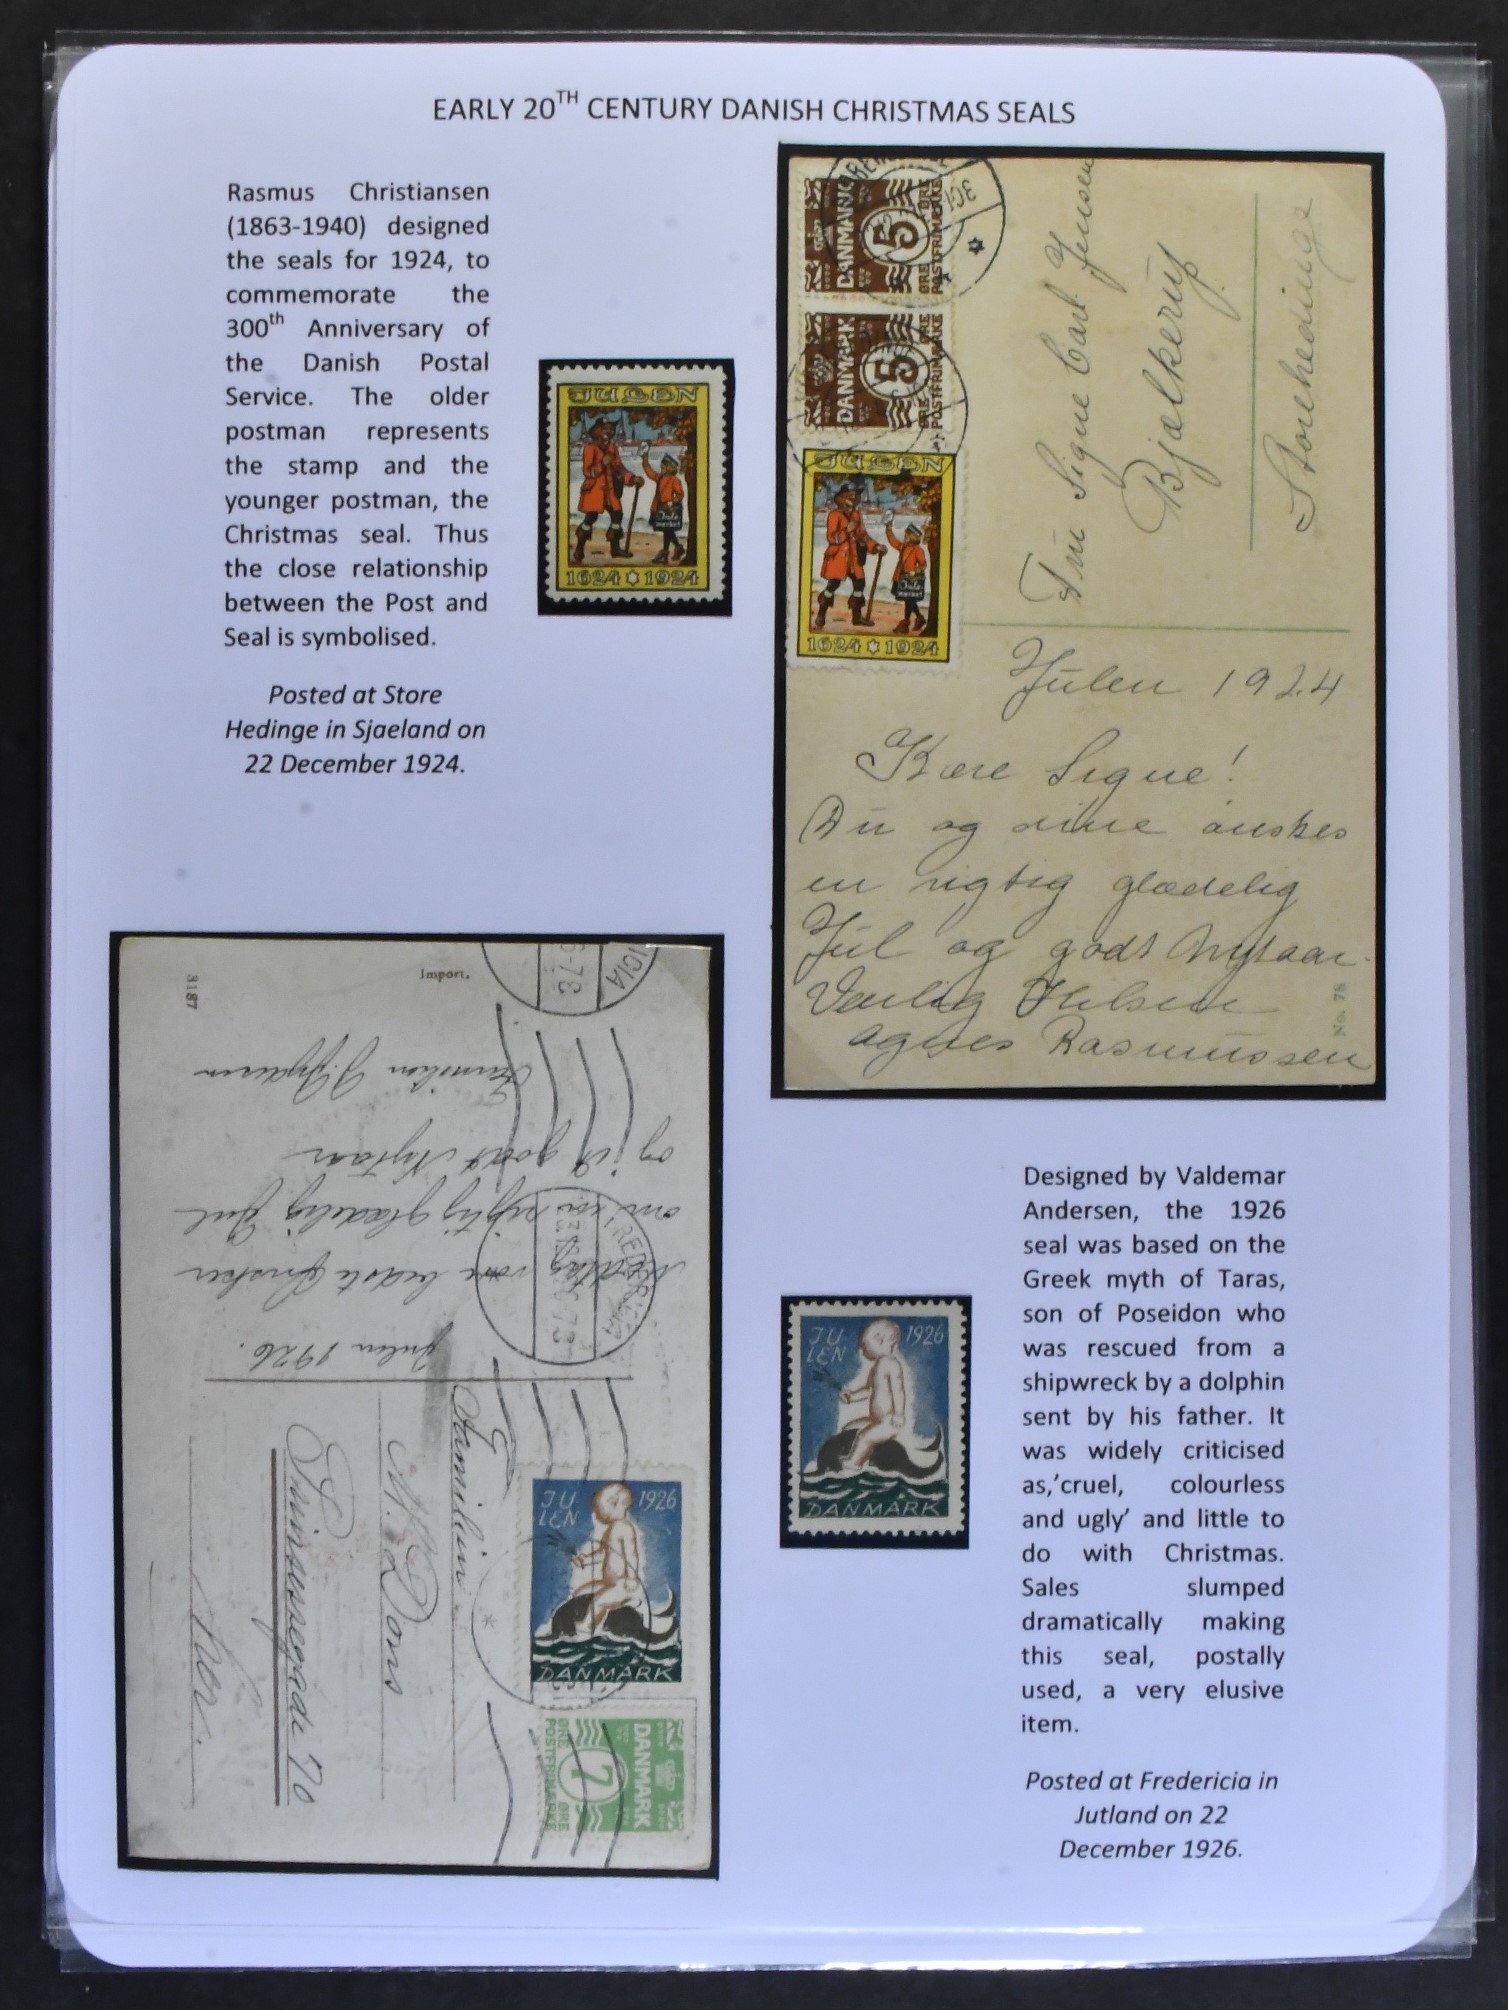 EARLY 20TH CENTURY DANISH CHRISTMAS SEALS
Rasmus Christiansen
(1863-1940) designed
the seals for 1924, to
commemorate the
300th Anniversary of
the Danish Postal
Service. The older
postman represents
the stamp and the
younger postman, the
Christmas seal. Thus
the close relationship
between the Post and
Seal is symbolised.
Posted at Store
Hedinge in Sjaeland on
22 December 1924.
JULEN
Jule
mærket
1624 1924
DANMARK
5
ØRE ØRE
POSTFRIMÆRKE
DANMARK
5
ØRE ØRE
POSTFRIMÆRKE
JULEN
Jule
mærket
1624 1924
Fru Signe Carl Jensen
Bjælkerup
Storehedinge
Julen 1924
Kære Signe!
Du og dine ønskes
en rigtig glædelig
Jul og godt Nytaar.
Venlig Hilsen
Agnes Rasmussen
No. 78
3187
Import.
Julen 1926.
Modtag vore bedste Ønsker
om en rigtig glædelig Jul
og et godt Nytaar
Familien
FREDERICIA
Familien
N. Dons
70
Her.
JU
LEN
1926
DANMARK
DANMARK
7
ØRE ØRE
POSTFRIMÆRKE
JU
LEN
1926
DANMARK
Designed by Valdemar
Andersen, the 1926
seal was based on the
Greek myth of Taras,
son of Poseidon who
was rescued from a
shipwreck by a dolphin
sent by his father. It
was widely criticised
as,'cruel, colourless
and ugly' and little to
do with Christmas.
Sales slumped
dramatically making
this seal, postally
used, a very elusive
item.
Posted at Fredericia in
Jutland on 22
December 1926.